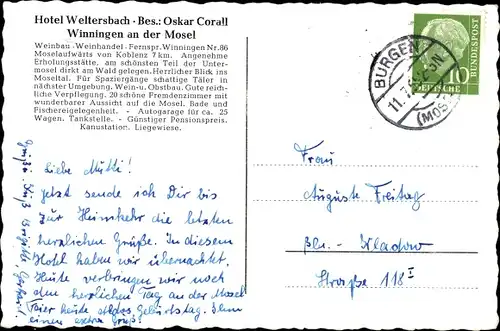 Hotel Weltersbach · Bes.: Oskar Corall
Winningen an der Mosel
Weinbau · Weinhandel · Fernspr. Winningen Nr. 86
Moselaufwärts von Koblenz 7 km. Angenehme
Erholungsstätte, am schönsten Teil der Unter-
mosel dirkt am Wald gelegen. Herrlicher Blick ins
Moseltal. Für Spaziergänge schattige Täler in
nächster Umgebung. Wein- u. Obstbau. Gute reich-
liche Verpflegung. 20 schöne Fremdenzimmer mit
wunderbarer Aussicht auf die Mosel. Bade und
Fischereigelegenheit. - Autogarage für ca. 25
Wagen. Tankstelle. - Günstiger Pensionspreis.
Kanustation. Liegewiese.
DEUTSCHE
BUNDESPOST
10
BURGEN
11.7.
(MOSEL)
Liebe Mutti!
Jetzt sende ich Dir bis
zur Heimkehr die letzten
herzlichen Grüße. In diesem
Hotel haben wir übernachtet.
Heute verbringen wir noch
den herrlichen Tag an der Mosel
heute Geburtstag. Ihm
einen extra Gruß!
Grüße Kuß Brigitte Gerhard
Frau
Auguste Freitag
Bln. - Kladow
Straße 118 I